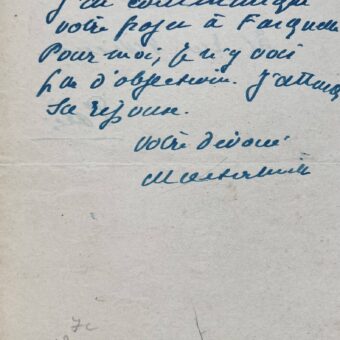 J'ai communiqué
votre projet à Fasquelle
Pour moi, je n'y vois
pas d'objection. J'attends
sa réponse.
votre dévoué